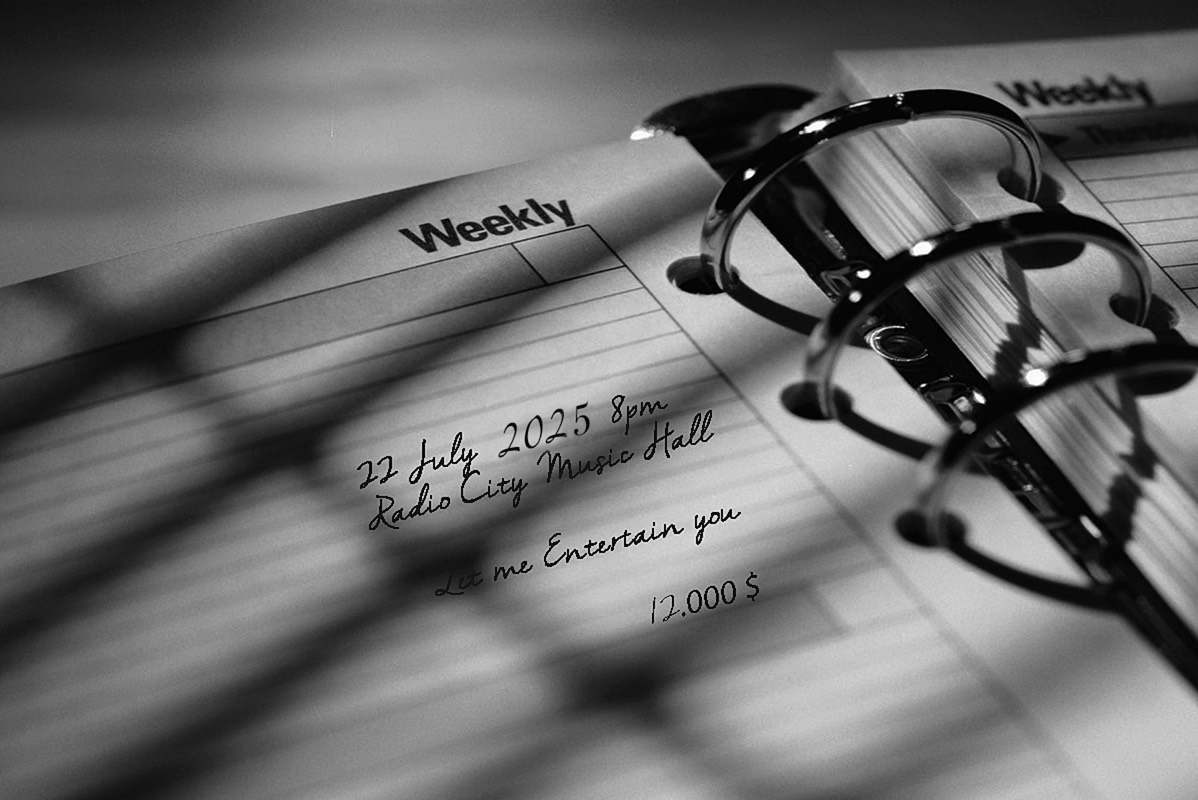 Weekly
22 July 2025 8pm
Radio City Music Hall
Let me Entertain you
12.000 $
Weekly